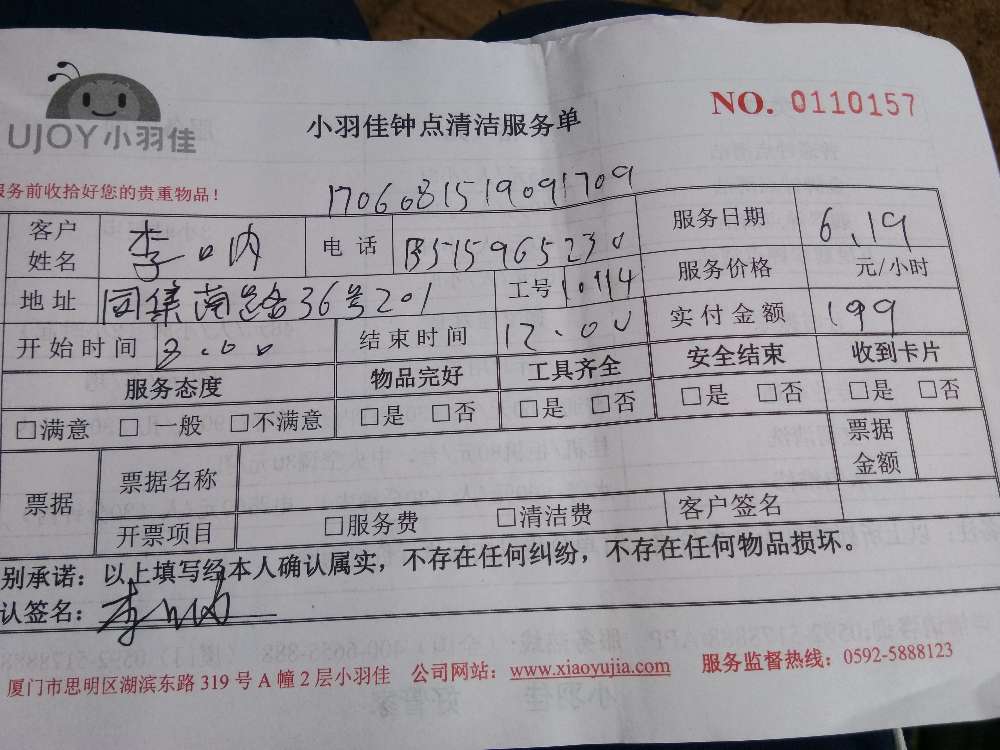 UJOY小羽佳
小羽佳钟点清洁服务单
NO. 0110157
服务前收拾好您的贵重物品！
1706081519091709
客户姓名 李 电话 服务日期 6.19
地址 团集南路36号201 工号 服务价格 元/小时
开始时间 结束时间 12.00 实付金额 199
服务态度 物品完好 工具齐全 安全结束 收到卡片
□满意 □ 一般 □不满意 □是 □否 □是 □否 □是 □否 □是 □否
票据 票据名称 票据金额
开票项目 □服务费 □清洁费 客户签名
别承诺：以上填写经本人确认属实，不存在任何纠纷，不存在任何物品损坏。
认签名：李
厦门市思明区湖滨东路 319 号 A 幢 2 层小羽佳 公司网站：www.xiaoyujia.com 服务监督热线：0592-5888123